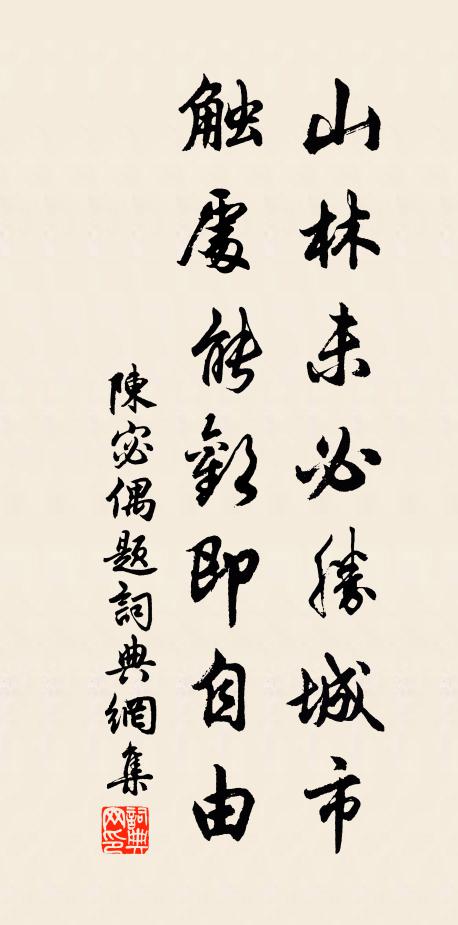 山林未必勝城市
触處能觀即自由
陳宓偶題詞典網集
詞典網印